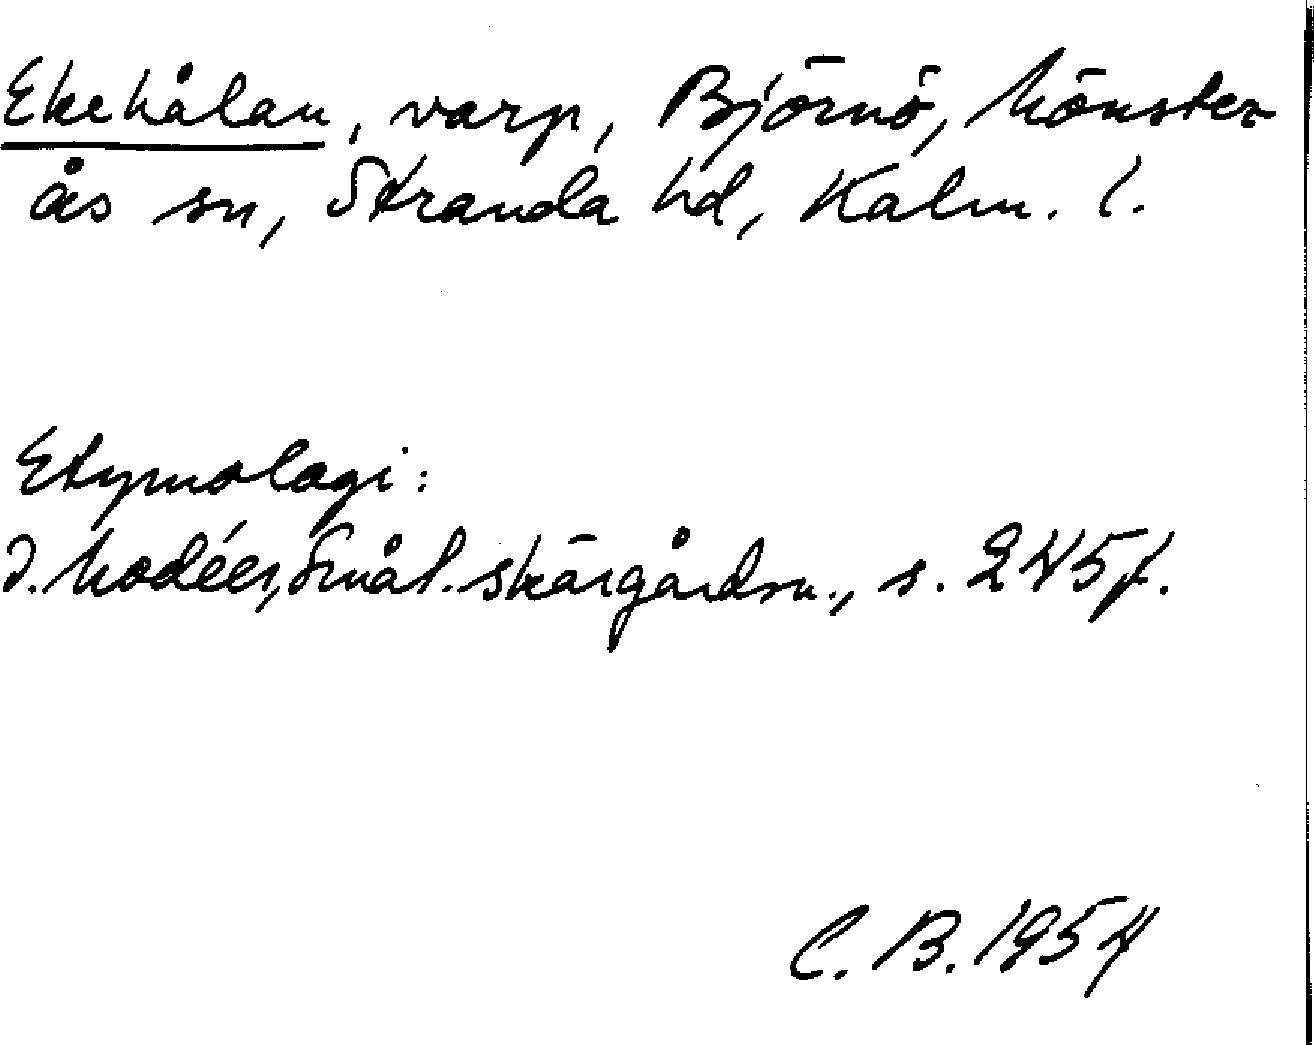 Ekehålan, varp, Björnö, Mönster-
ås sn, Stranda hd, Kalm. l.
Etymologi:
I. Modéer, Smål. skärgårdsn., s. 245f.
C. B. 1954